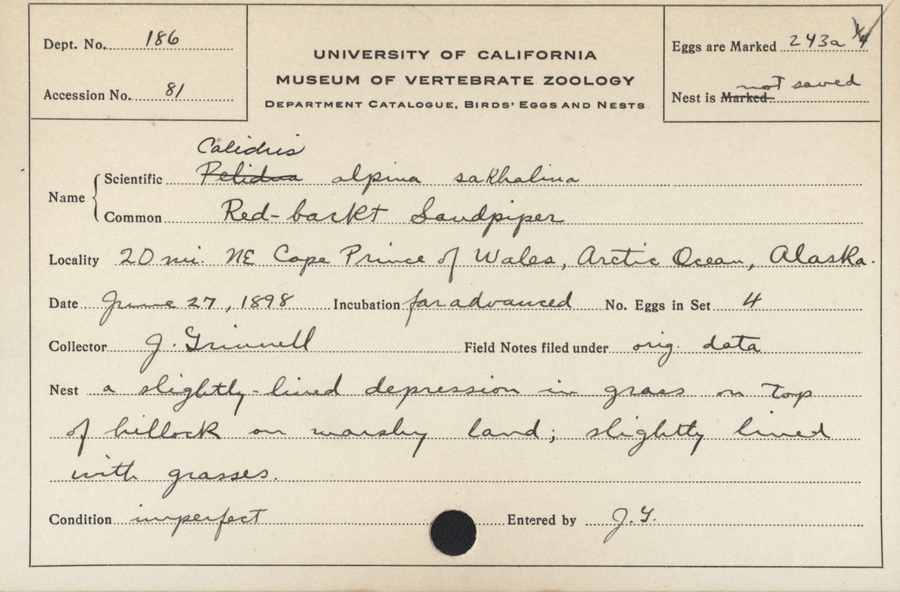 Dept. No. 186
Accession No. 81
UNIVERSITY OF CALIFORNIA
MUSEUM OF VERTEBRATE ZOOLOGY
DEPARTMENT CATALOGUE, BIRDS' EGGS AND NESTS
Eggs are Marked 243a 1/4
not saved
Nest is Marked
Calidris
Name
Scientific Pelidna alpina sakhalina
Common Red-backt Sandpiper
Locality 20 mi. NE Cape Prince of Wales, Arctic Ocean, Alaska.
Date June 27, 1898 Incubation far advanced No. Eggs in Set 4
Collector J. Grinnell Field Notes filed under orig. data
Nest a slightly-lined depression in grass on top
of hillock on marshy land; slightly lined
with grasses.
Condition imperfect Entered by J.G.